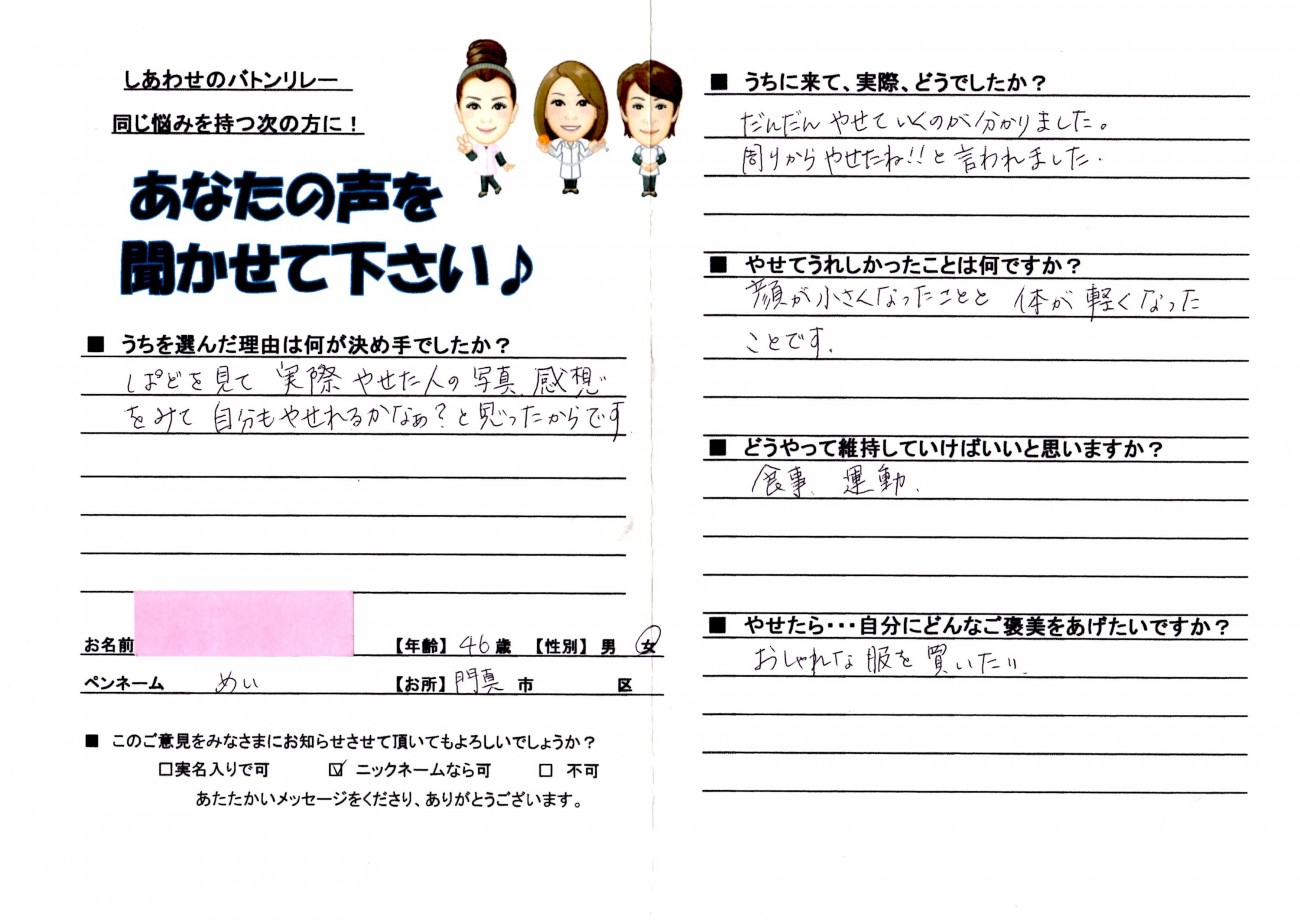 しあわせのバトンリレー
同じ悩みを持つ次の方に！
あなたの声を
聞かせて下さい♪
■ うちを選んだ理由は何が決め手でしたか？
ぱどを見て 実際 やせた人の 写真、感想
をみて 自分もやせれるかなぁ？と思ったからです
お名前 【年齢】 46 歳 【性別】 男 女
ペンネーム めい 【お所】 門真 市 区
■ このご意見をみなさまにお知らせさせて頂いてもよろしいでしょうか？
□実名入りで可 ☑ ニックネームなら可 □ 不可
あたたかいメッセージをくださり、ありがとうございます。
■ うちに来て、実際、どうでしたか？
だんだん やせていくのが分かりました。
周りからやせたね!!と言われました.
■ やせてうれしかったことは何ですか？
顔が小さくなったことと 体が軽くなった
ことです.
■ どうやって維持していけばいいと思いますか？
食事、運動.
■ やせたら・・・自分にどんなご褒美をあげたいですか？
おしゃれな服を買いたい.